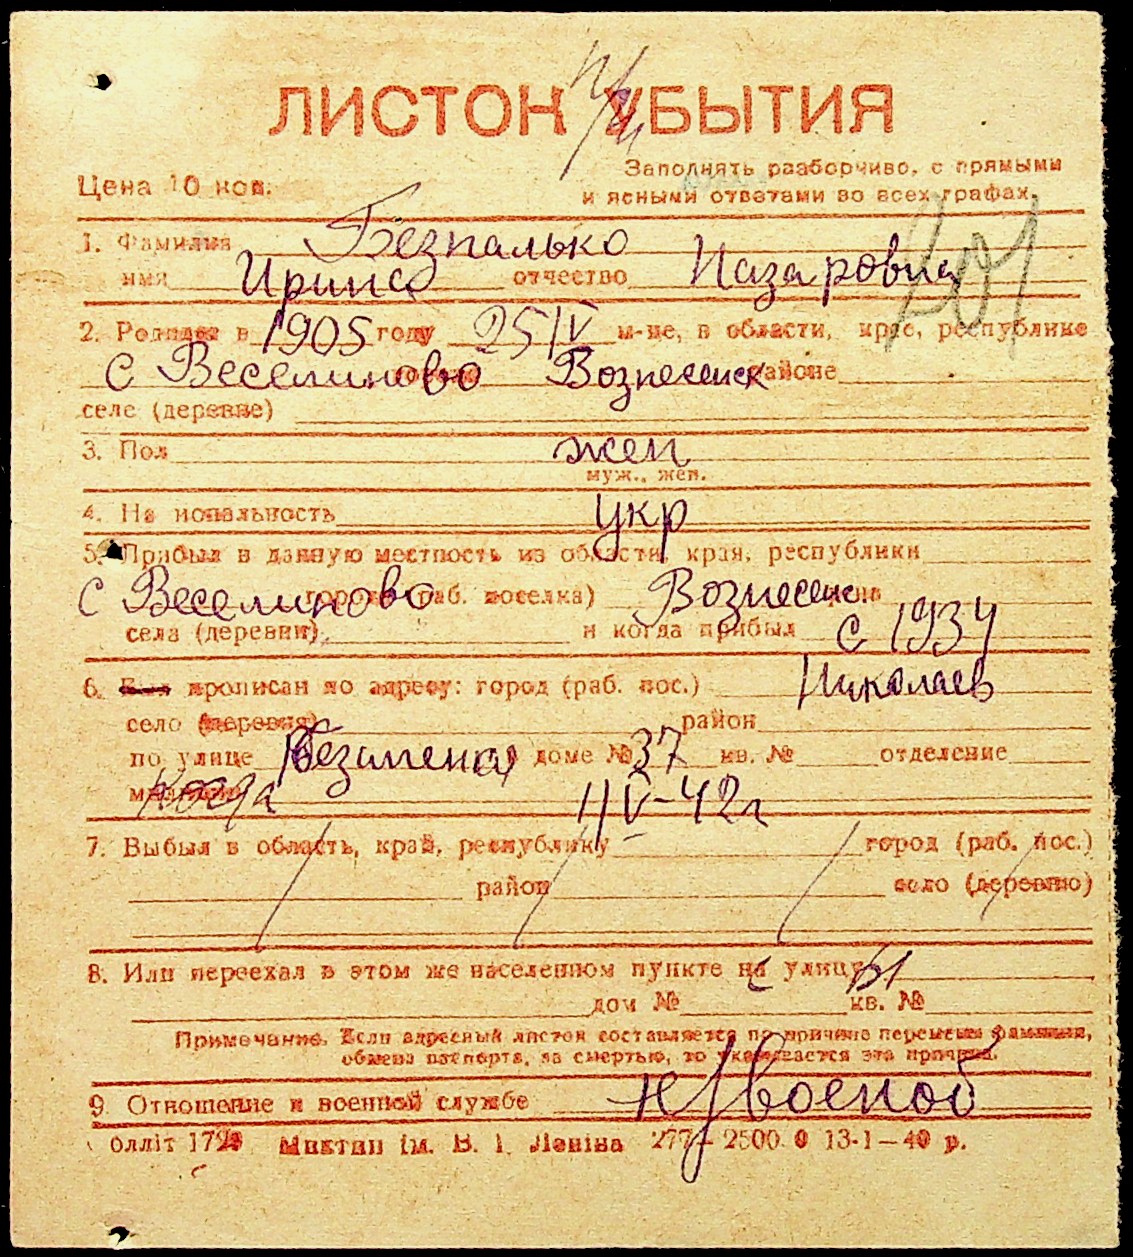 ЛИСТОК УБЫТИЯ
Цена 10 коп.
Заполнять разборчиво, с прямыми
и ясными ответами во всех графах.
1. Фамилия Безпалько
имя Ирина отчество Назаровна
201
2. Родился в 1905 году 25/V м-це, в области, крае, республике
с Веселиново Вознесенск районе
селе (деревне)
3. Пол жен
муж., жен.
4. Национальность укр
5. Прибыл в данную местность из области, края, республики
с Веселиново города (раб. поселка) Вознесенск
села (деревни) и когда прибыл с 1934
6. Был прописан по адресу: город (раб. пос.) Николаев
село (деревня) район
по улице Безименая доме № 37 кв. № отделение
милиции когда 1/V-42г
7. Выбыл в область, край, республику город (раб. пос.)
район село (деревню)
8. Или переехал в этом же населенном пункте на улицу
дом № кв. №
Примечание. Если адресный листок составляется по причине перемены фамилии,
обмена паспорта, за смертью, то указывается эта причина.
9. Отношение к военной службе н/военооб
Миктип ім. В. І. Леніна 277—2500.0 13-1-40 р.